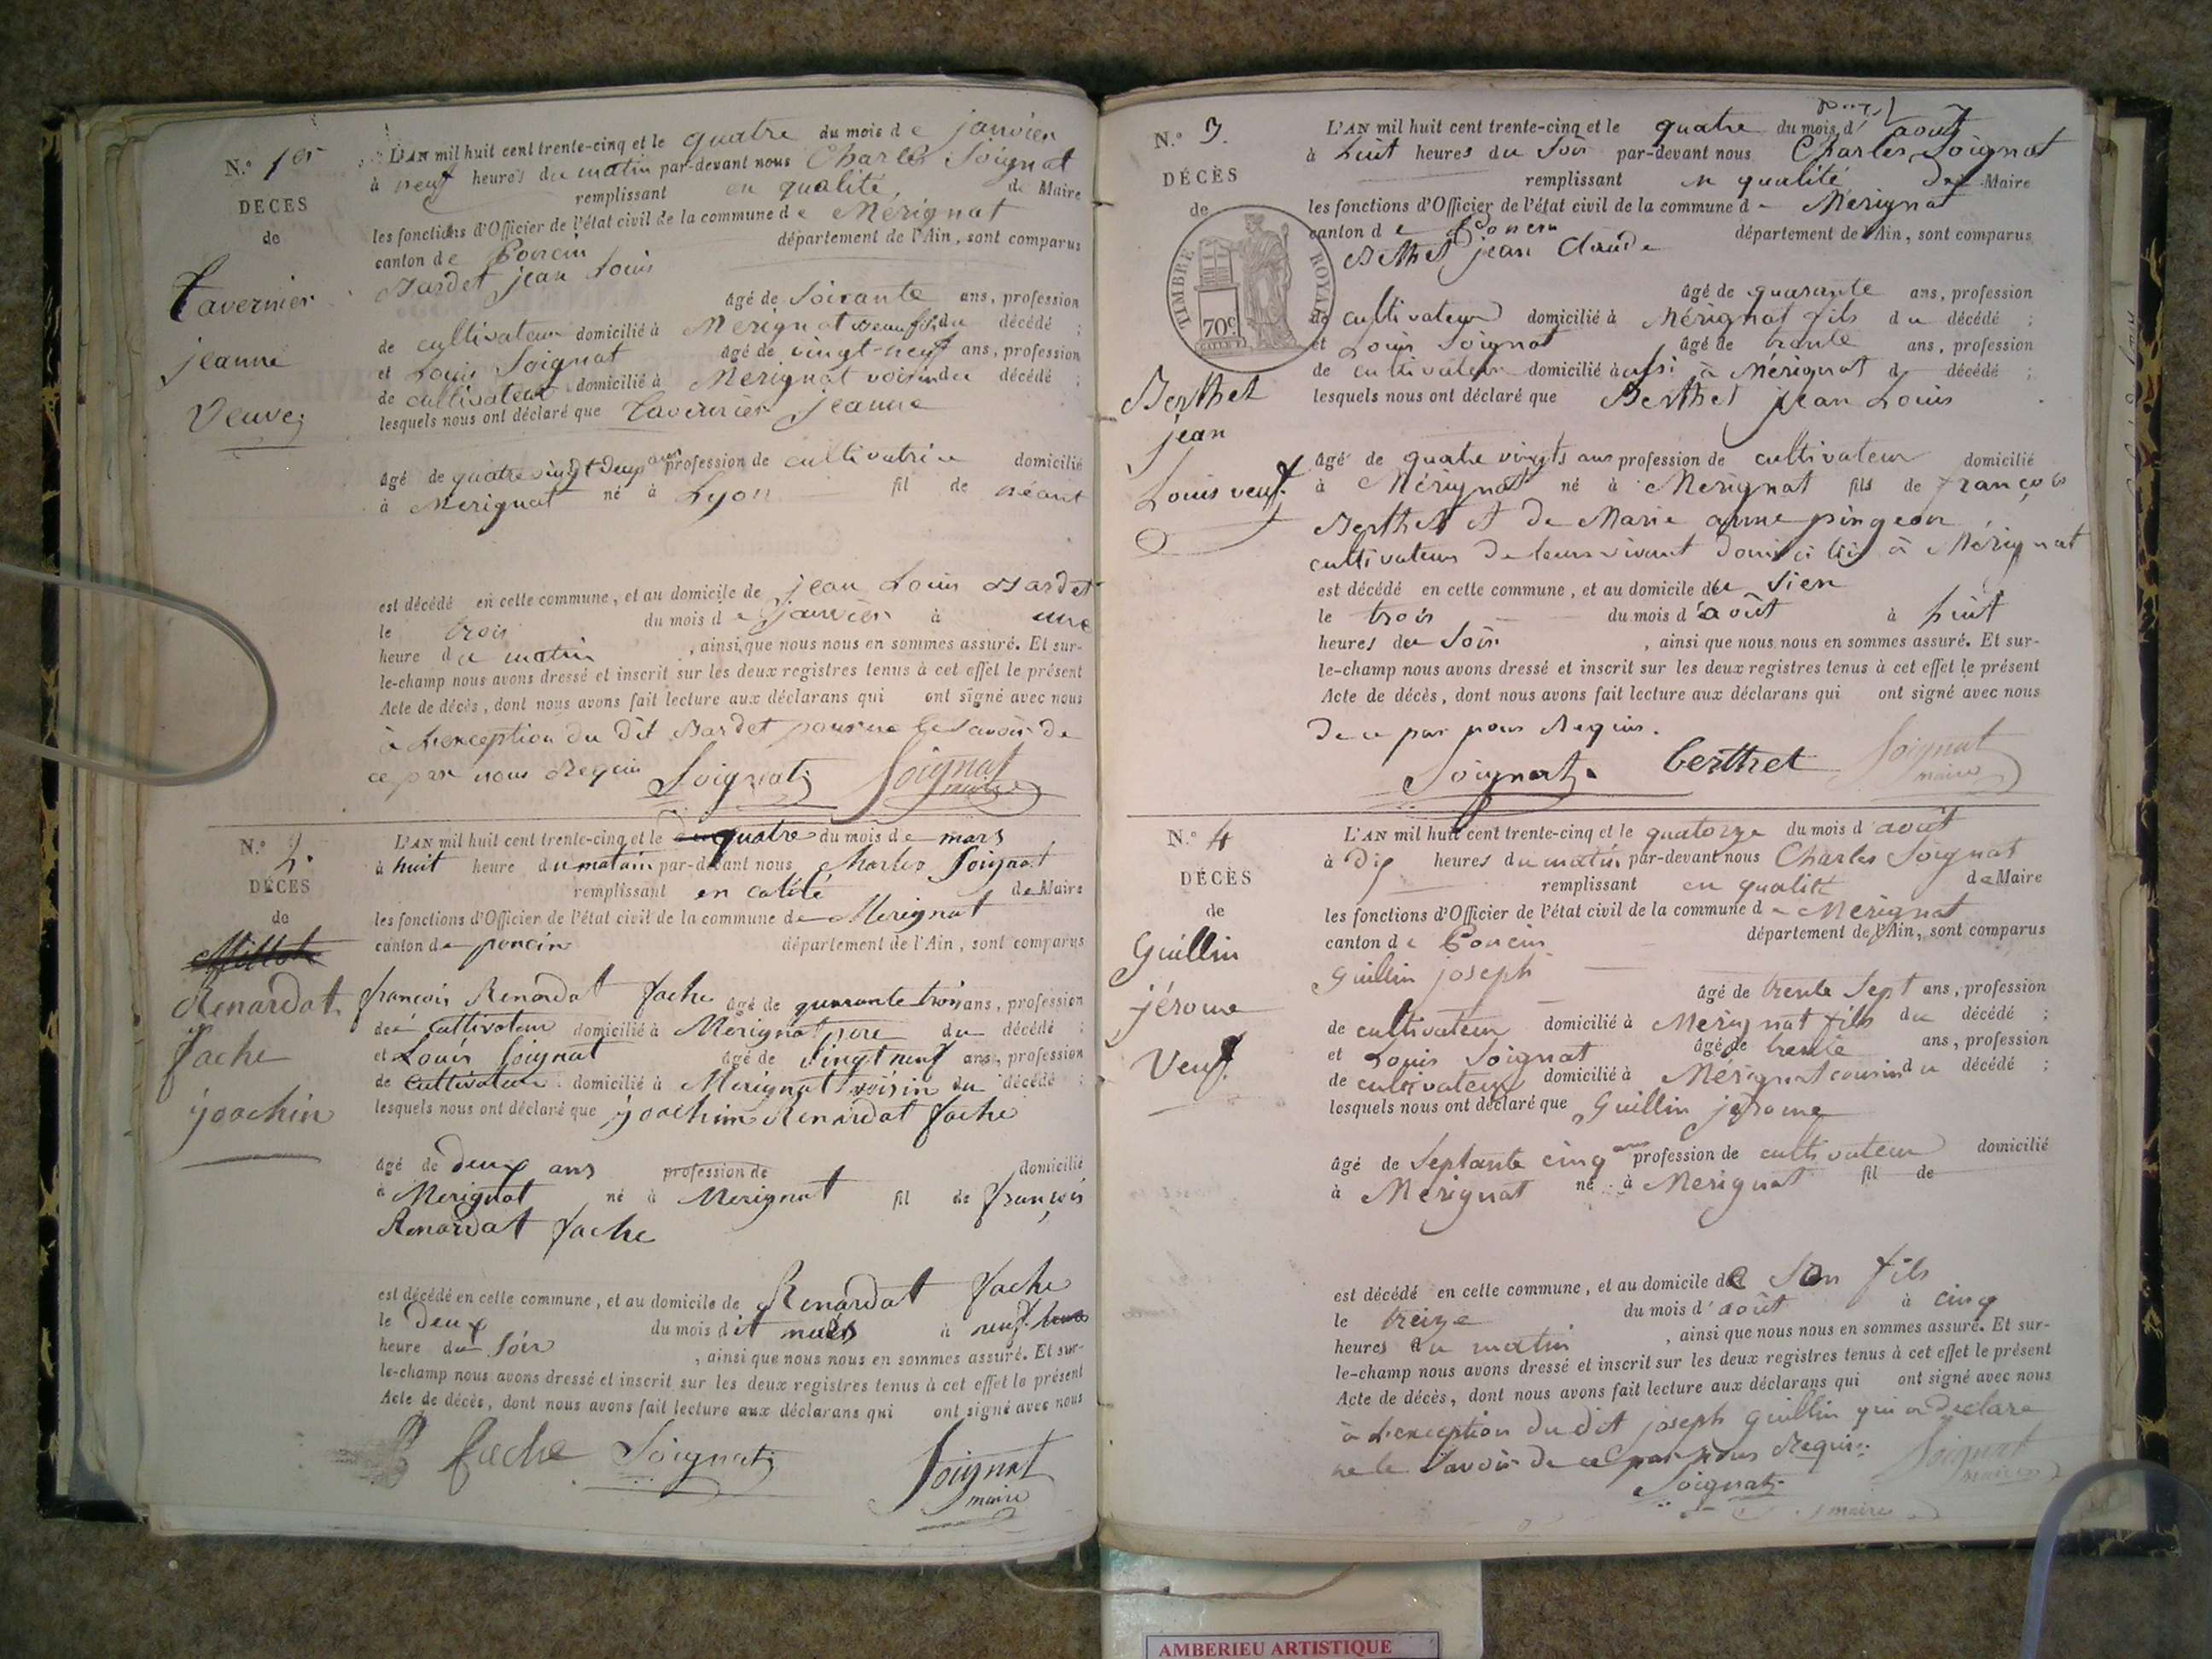 N.º 1er
DÉCÈS
de
Tavernier
jeanne
Veuve
L'AN mil huit cent trente-cinq et le quatre du mois de janvier
à neuf heures du matin par-devant nous Charles Soignat
remplissant en qualité de Maire
les fonctions d'Officier de l'état civil de la commune de Mérignat
canton de Poncin département de l'Ain, sont comparus
Bardet jean Louis
âgé de Soixante ans, profession
de cultivateur domicilié à Merignat beaufils du décédé ;
et Louis Soignat âgé de vingt-neuf ans, profession
de cultivateur domicilié à Merignat voisin du décédé ;
lesquels nous ont déclaré que Tavernier jeanne
âgé de quatre vingt deux ans profession de cultivatrice domicilié
à Merignat né à Lyon fil de néant
est décédé en cette commune, et au domicile de jean Louis Bardet
le trois du mois de janvier à une
heure du matin , ainsi que nous nous en sommes assuré. Et sur-
le-champ nous avons dressé et inscrit sur les deux registres tenus à cet effet le présent
Acte de décès, dont nous avons fait lecture aux déclarans qui ont signé avec nous
à L'exception du dit Bardet pour ne le savoir de
ce par nous Requis Soignat Soignat
maire
N.º 2.
DÉCES
de
Renardat
fache
joachin
L'AN mil huit cent trente-cinq et le quatre du mois de mars
à huit heure du matain par-devant nous Charles Soignat
remplissant en calité de Maire
les fonctions d'Officier de l'état civil de la commune de Merignat
canton de poncin département de l'Ain, sont comparus
françois Renardat fache âgé de quarante trois ans, profession
de cultivateur domicilié à Merignat pere du décédé ;
et Louis Soignat âgé de vingt neuf ans, profession
de cultivateur domicilié à Merignat voisin du décédé ;
lesquels nous ont déclaré que joachim Renardat fache
âgé de deux ans profession de domicilié
à Merignat né à Merignat fil de françois
Renardat fache
est décédé en cette commune, et au domicile de Renardat fache
le deux du mois dit mars à neuf
heure du soir , ainsi que nous nous en sommes assuré. Et sur-
le-champ nous avons dressé et inscrit sur les deux registres tenus à cet effet le présent
Acte de décès, dont nous avons fait lecture aux déclarans qui ont signé avec nous
fache Soignat Soignat
maire
N.º 3.
DÉCÈS
de
TIMBRE ROYAL
70c
Berthet
jean
Louis veuf
L'AN mil huit cent trente-cinq et le quatre du mois d'août
à huit heures du soir par-devant nous Charles Soignat
remplissant en qualité de Maire
les fonctions d'Officier de l'état civil de la commune de Mérignat
canton de Poncin département de l'Ain, sont comparus
Bethet jean Claude
âgé de quarante ans, profession
de cultivateur domicilié à Mérignat fils du décédé ;
et Louis Soignat âgé de trante ans, profession
de cultivateur domicilié aussi à Mérignat d décédé ;
lesquels nous ont déclaré que Berthet jean Louis
âgé de quatre vingts ans profession de cultivateur domicilié
à Mérignat né à Merignat fils de françois
Berthet et de Marie anne pingeon
cultivateurs de leurs vivant domiciliés à Mérignat
est décédé en cette commune, et au domicile du Sien
le trois du mois d'août à huit
heures du Soir , ainsi que nous nous en sommes assuré. Et sur-
le-champ nous avons dressé et inscrit sur les deux registres tenus à cet effet le présent
Acte de décès, dont nous avons fait lecture aux déclarans qui ont signé avec nous
De ce par nous Requis.
Soignat. berthet Soignat
maire
N.º 4
DÉCÈS
de
Guillin
jérome
Veuf
L'AN mil huit cent trente-cinq et le quatorze du mois d'août
à dix heures du matin par-devant nous Charles Soignat
remplissant en qualité de Maire
les fonctions d'Officier de l'état civil de la commune de Merignat
canton de Poncin département de l'Ain, sont comparus
Guillin joseph
âgé de trente Sept ans, profession
de cultivateur domicilié à Merignat fils du décédé ;
et Louis Soignat âgé de trente ans, profession
de cultivateur domicilié à Mérignat cousin du décédé ;
lesquels nous ont déclaré que Guillin jérome
âgé de Septante cinq ans profession de cultivateur domicilié
à Merignat né à Merignat fil de
est décédé en cette commune, et au domicile de Son fils
le treize du mois d'août à cinq
heures du matin , ainsi que nous nous en sommes assuré. Et sur-
le-champ nous avons dressé et inscrit sur les deux registres tenus à cet effet le présent
Acte de décès, dont nous avons fait lecture aux déclarans qui ont signé avec nous
à L'exception du dit joseph guillin qui a declare
ne le Savoir de ce par nous Requis.
Soignat Soignat
maire
AMBERIEU ARTISTIQUE